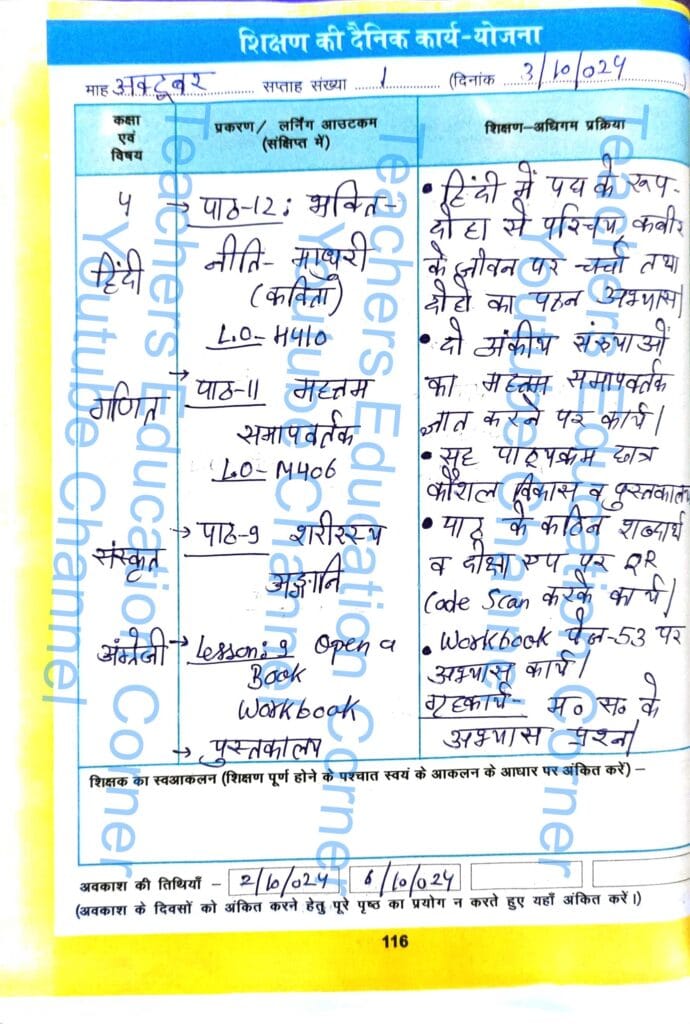 शिक्षण की दैनिक कार्य-योजना
माह अक्टूबर सप्ताह संख्या 1 (दिनांक 3/10/024)
कक्षा एवं विषय
प्रकरण/ लर्निंग आउटकम (संक्षिप्त में)
शिक्षण-अधिगम प्रक्रिया
५
हिंदी
→ पाठ-12: भक्ति-
नीति- माधुरी
(कविता)
L.O- H410
गणित
→ पाठ-11 महत्तम
समापवर्तक
L.O- M406
संस्कृत
→ पाठ-9 शरीरस्य
अङ्गानि
अंग्रेजी
→ Lesson: 9 Open a
Book
Workbook
→ पुस्तकालय
• हिंदी में पद्य के रूप-
दोहा से परिचय, कबीर
के जीवन पर चर्चा तथा
दोहो का पठन अभ्यास।
• दो अंकीय संख्याओं
का महत्तम समापवर्तक
ज्ञात करने पर कार्य।
• सह पाठ्यक्रम छात्र
कौशल विकास व पुस्तकालय
• पाठ के कठिन शब्दार्थ
व दीक्षा एप पर QR
Code Scan करके कार्य।
• Workbook पेज-53 पर
अभ्यास कार्य।
गृहकार्य- म० स० के
अभ्यास प्रश्न।
शिक्षक का स्वआकलन (शिक्षण पूर्ण होने के पश्चात स्वयं के आकलन के आधार पर अंकित करें) –
अवकाश की तिथियाँ – 2/10/024 6/10/024
(अवकाश के दिवसों को अंकित करने हेतु पूरे पृष्ठ का प्रयोग न करते हुए यहाँ अंकित करें।)
116
Teachers Education Corner
Youtube Channel
Teachers Education Corner
Youtube Channel
Teachers Education Corner
Youtube Channel